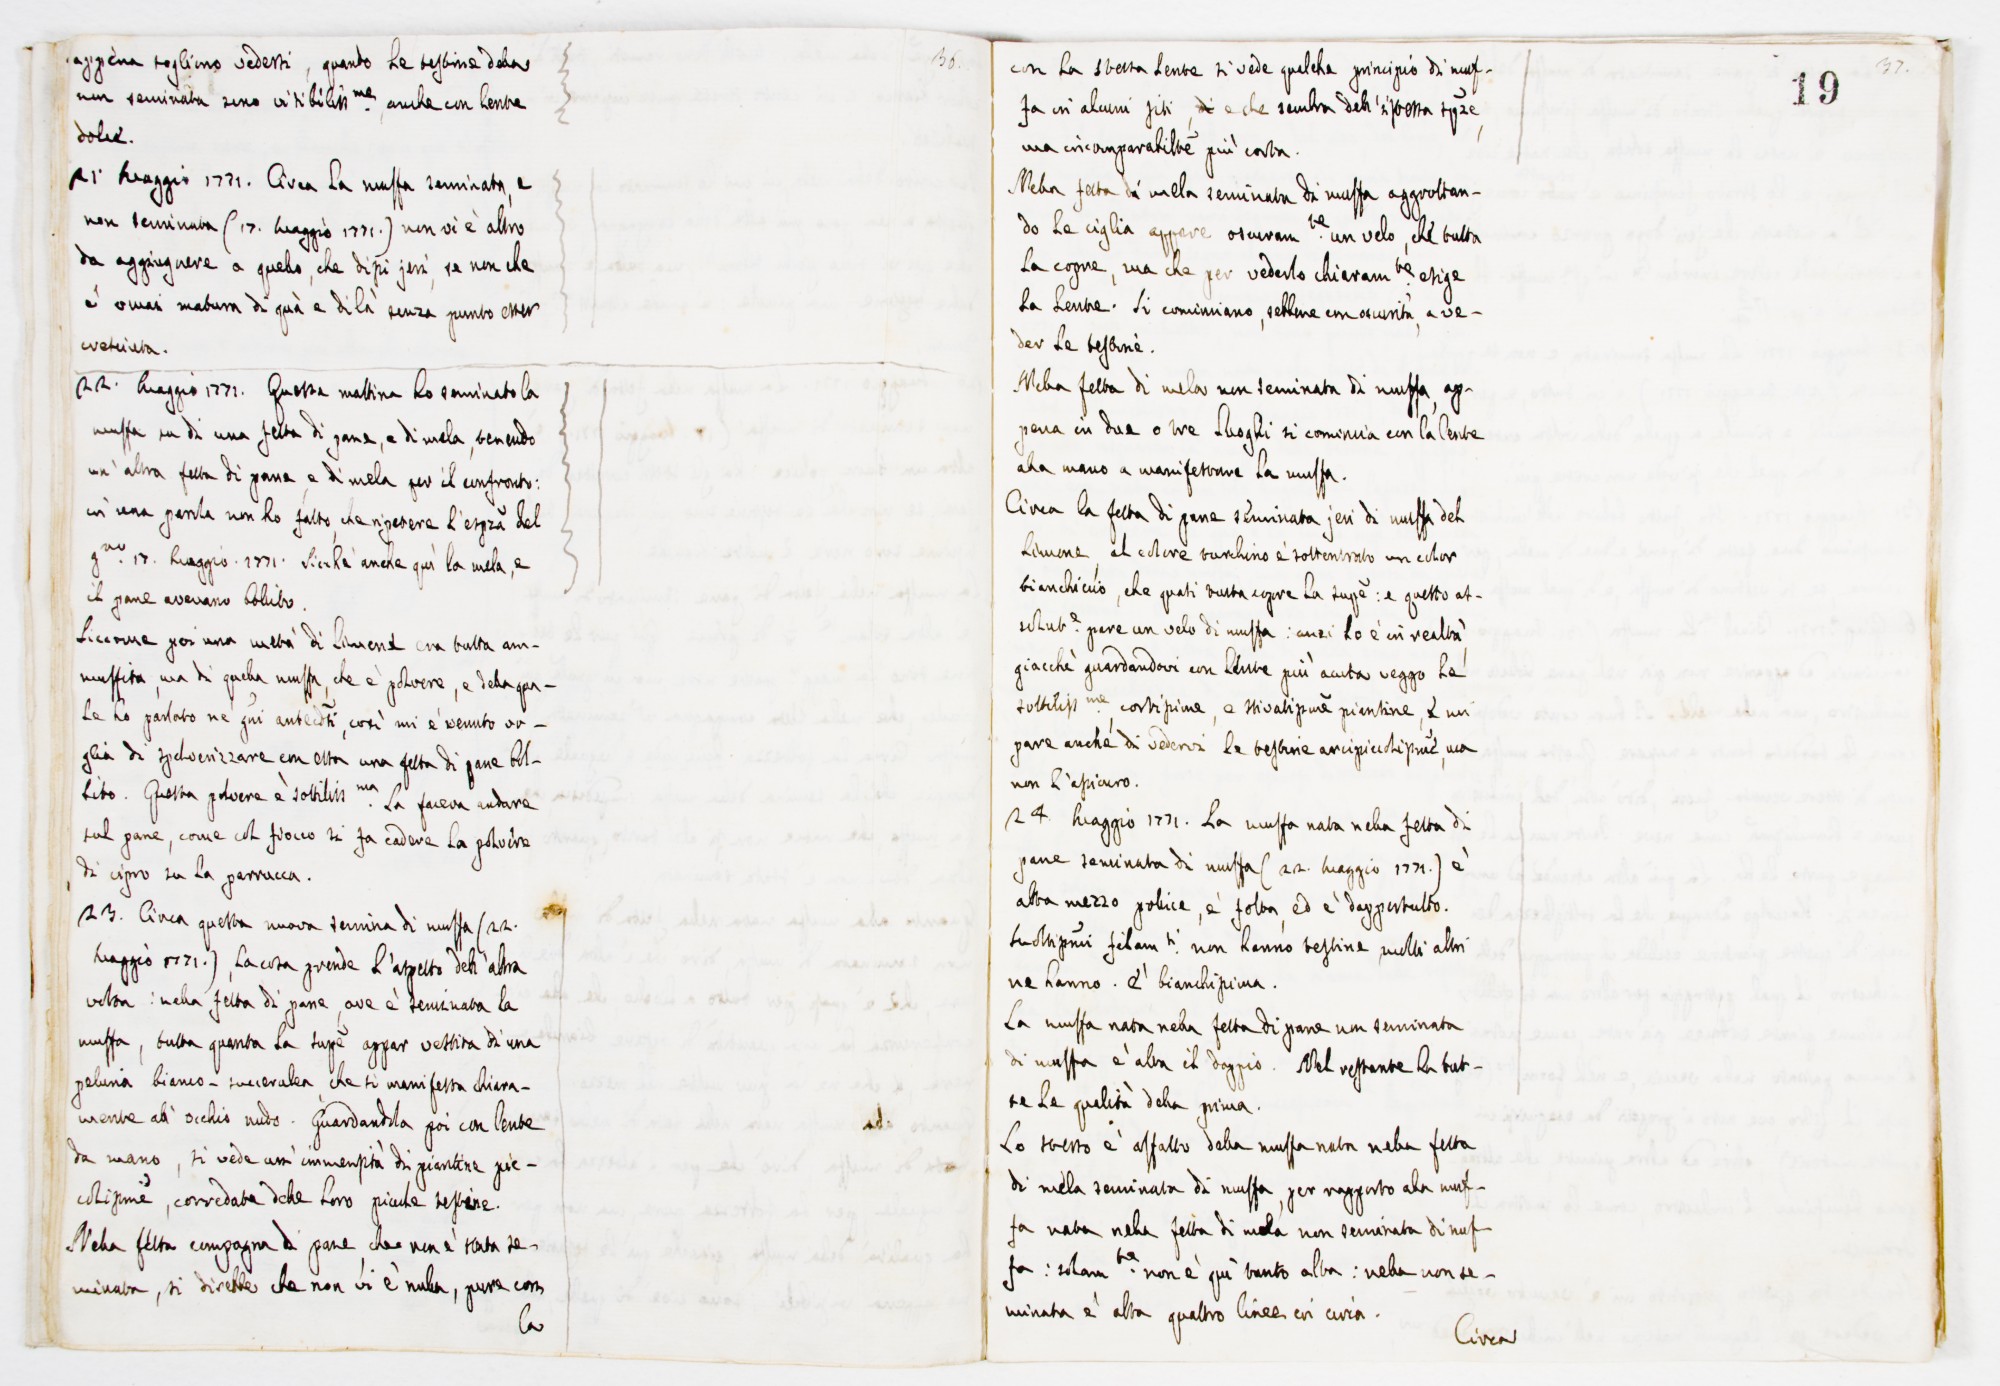 36.
appena sogliono vedersi, quando le testine della
non seminata sono visibiliss.me, anche con lente
dolce.
21. Maggio 1771. Circa la muffa seminata, e
non seminata (17. Maggio 1771.) non vi è altro
da aggiugnere a quello, che dissi jeri, se non che
è omai matura di quà e di là senza punto esser
cresciuta.
22. Maggio 1771. Questa mattina ho seminato la
muffa su di una fetta di pane, e di mela, tenendo
un' altra fetta di pane, e di mela per il confronto:
in una parola non ho fatto, che ripetere l'esprza del
gno. 17. Maggio. 1771. Sicchè anche quì la mela, e
il pane avevano bollito.
Siccome poi una metà di Limone era tutta am-
muffita, ma di quella muffa, che è polvere, e della qua-
le ho parlato ne' gni antecdti, così mi è venuto vo-
glia di spolverizzare con essa una fetta di pane bol-
lito. Questa polvere è sottiliss.ma. La faceva andare
sul pane, come col fiocco si fa cadere la polvere
di cipro su la perrucca.
23. Circa questa nuova semina di muffa (22.
Maggio 1771.), la cosa prende l'aspetto dell'altra
volta: nella fetta di pane, ove è seminata la
muffa, tutta quanta la supe appar vestita di una
peluria bianco-succerulea che si manifesta chiara-
mente all' occhio nudo. Guardandola poi con lente
da mano, si vede un' immensità di piantine pic-
colissime, corredate delle loro piccole testine.
Nella fetta compagna di pane che non è stata se-
minata, si direbbe che non vi è nulla, pure con
la
37.
19
con la stessa lente si vede qualche principio di muf-
fa in alcuni siti, e che sembra dell'istessa spze,
ma incomparabilte più corta.
Nella fetta di mela seminata di muffa aggrottan-
do le ciglia appare oscuram.te un velo, che tutta
la copre, ma che per vederlo chiaram.te esige
la lente. Si cominciano, sebbene con oscurità, a ve-
der le testine.
Nella fetta di mela non seminata di muffa, ap-
pena in due o tre luoghi si comincia con la lente
alla mano a manifestare la muffa.
Circa la fetta di pane seminata jeri di muffa del
Limone, al colore turchino è sottentrato un color
bianchiccio, che quasi tutta copre la supe: e questo as-
solut.e pare un velo di muffa: anzi lo è in realtà,
giacchè guardandovi con lente più acuta veggo le
sottiliss.me, cortissime, e stivatissime piantine, e mi
pare anche di vedervi le testine arcipiccolissime, ma
non l'assicuro.
24. Maggio 1771. La muffa nata nella fetta di
pane seminata di muffa (22. Maggio 1771.) è
alta mezzo pollice, è folta, ed è dappertutto.
Moltissimi filam.ti non hanno testine, molti altri
ne hanno. È bianchissima.
La muffa nata nella fetta di pane non seminata
di muffa è alta il doppio. Nel restante ha tut-
te le qualità della prima.
Lo stesso è affatto della muffa nata nella fetta
di mela seminata di muffa, per rapporto alla muf-
fa nata nella fetta di mela non seminata di muf-
fa: solam.te non è quì tanto alta: nella non se-
minata è alta quattro linee in circa.
Circa